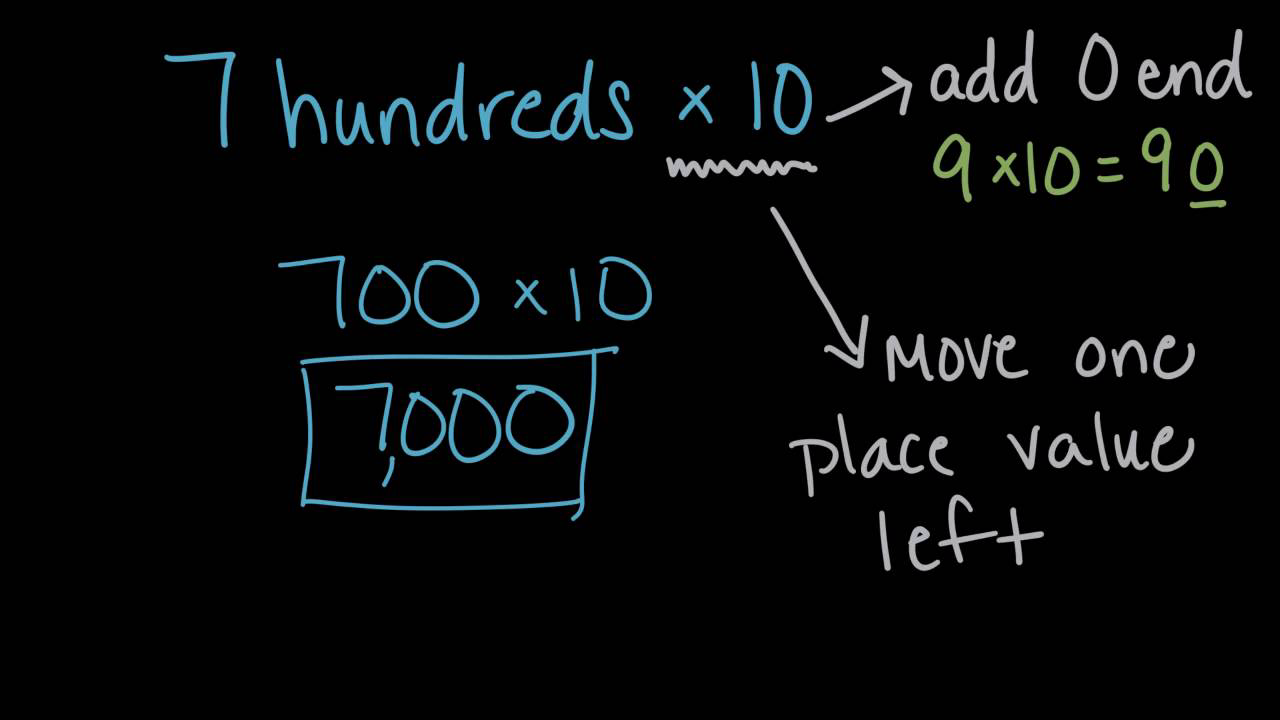 7 hundreds × 10
add 0 end
9 × 10 = 90
700 × 10
7,000
Move one
place value
left